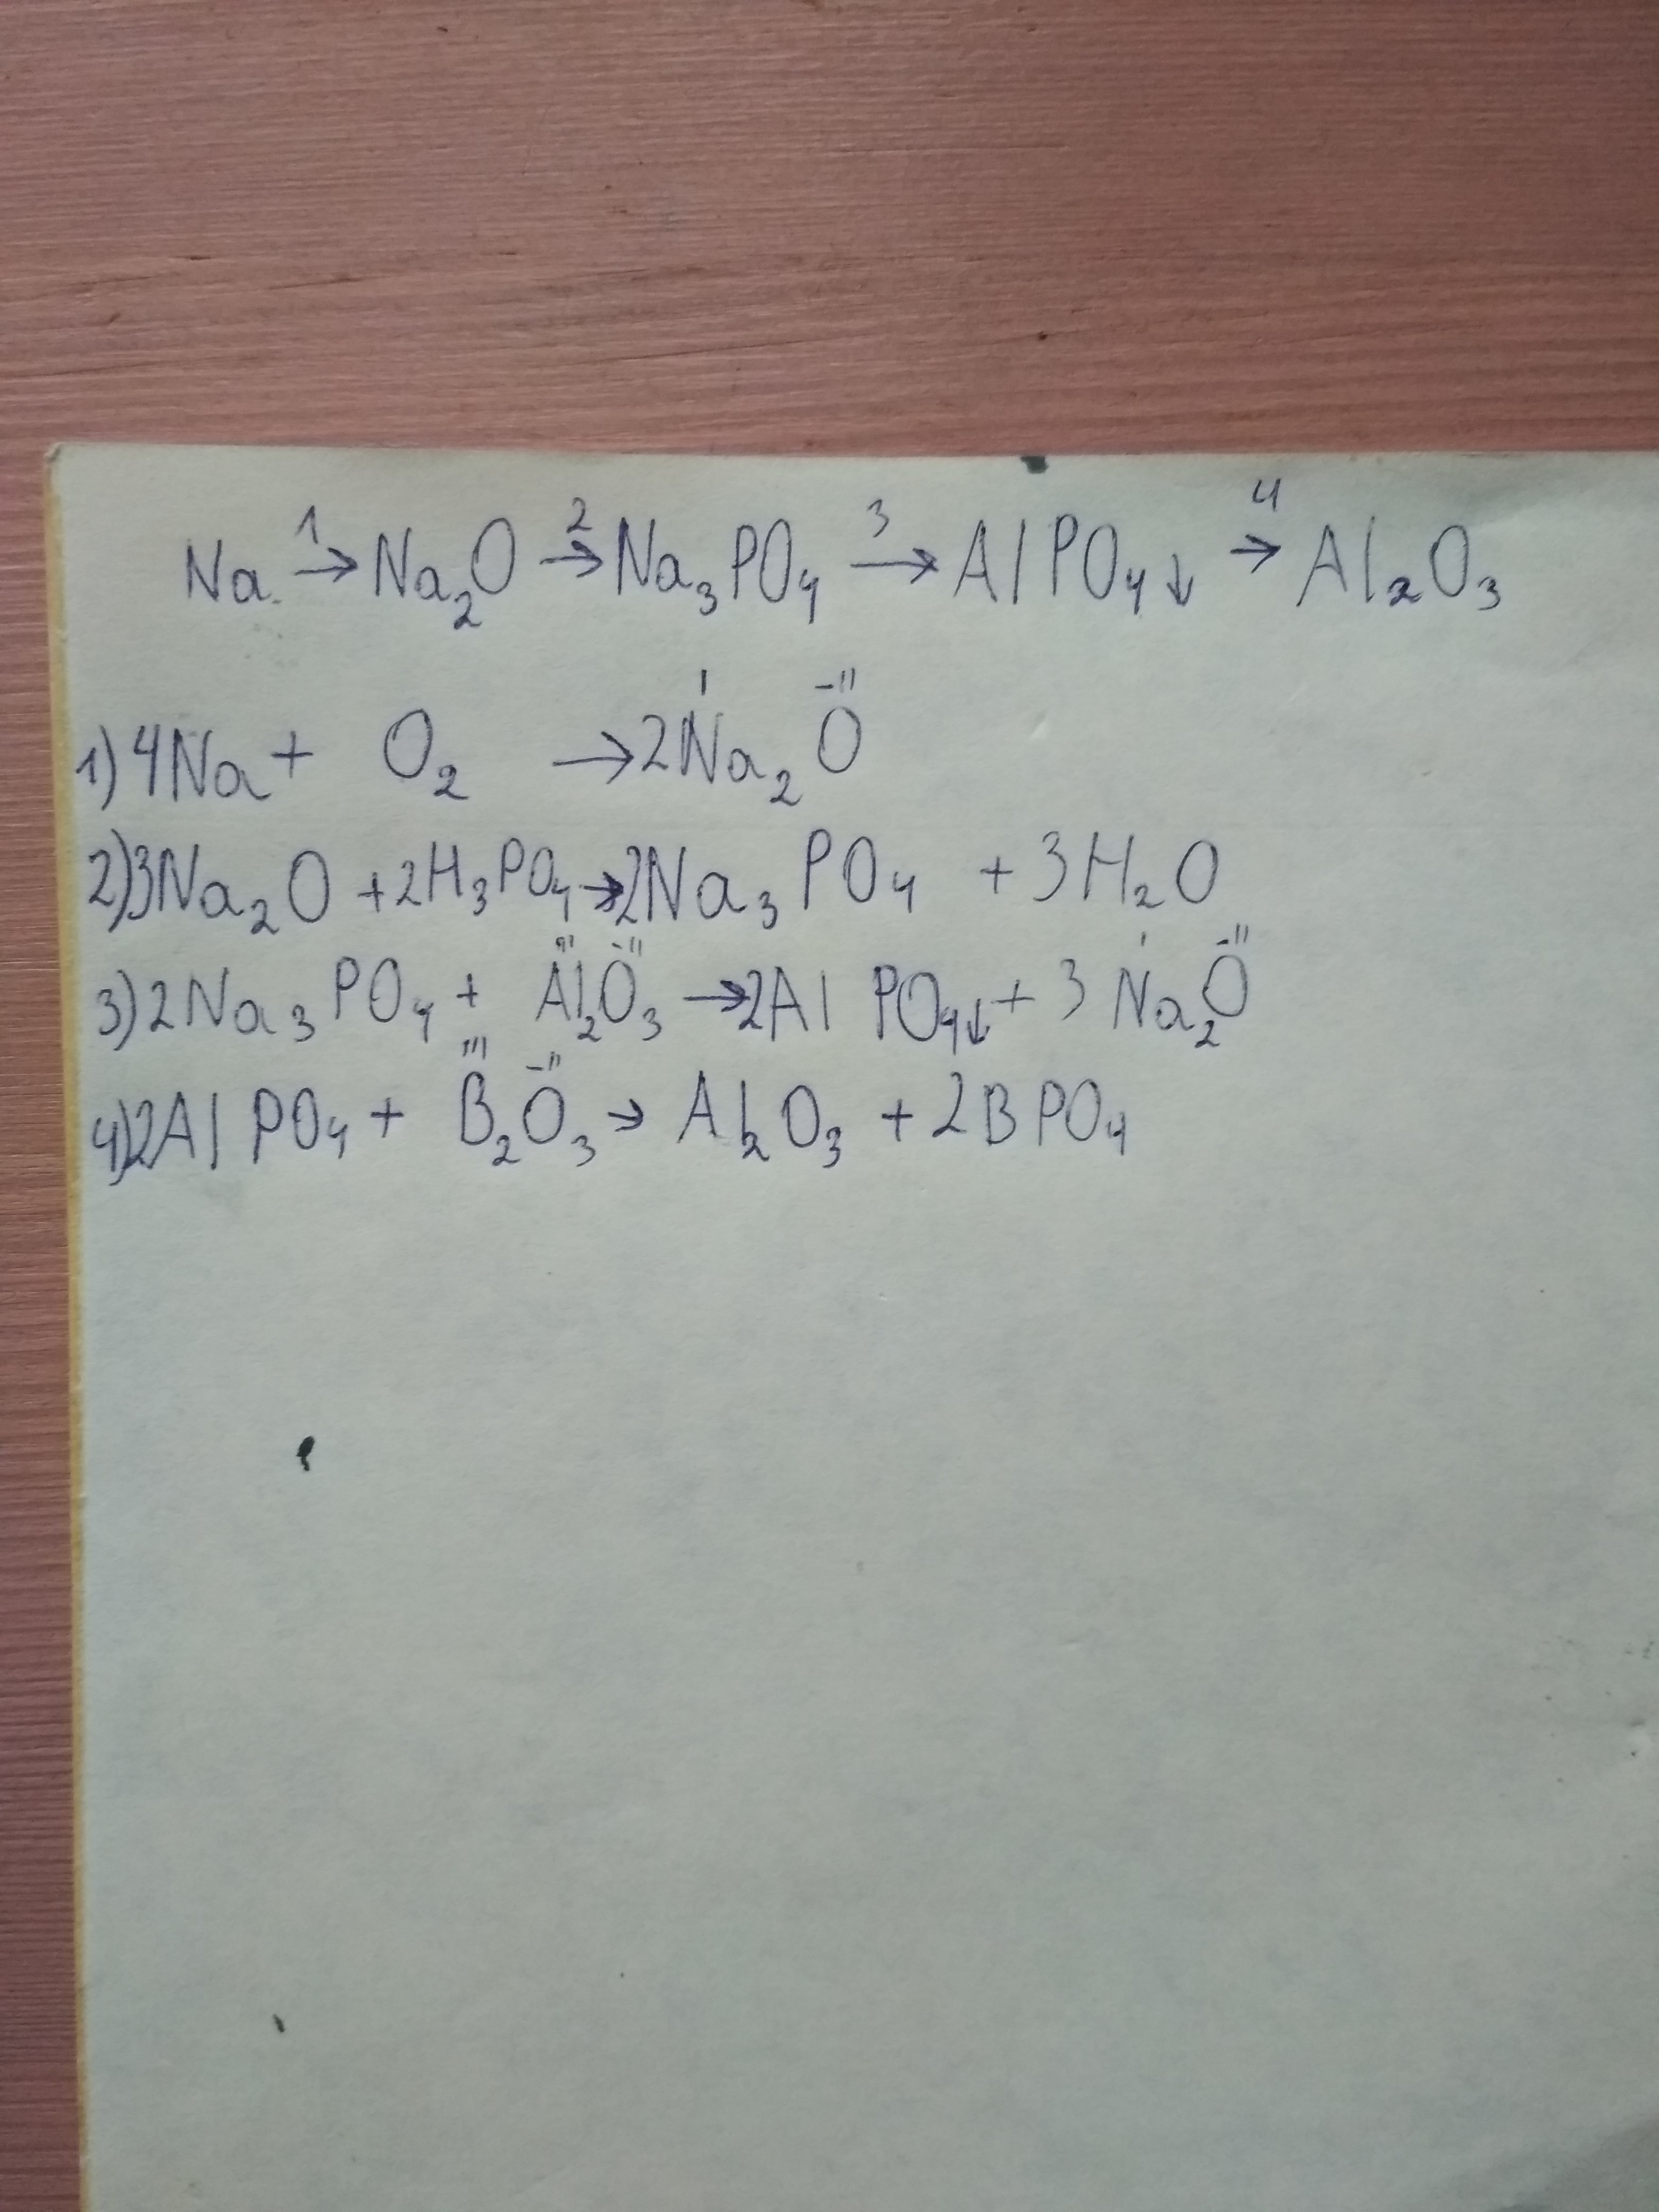 Na 1→ Na₂O 2→ Na₃PO₄ 3→ AlPO₄↓ 4→ Al₂O₃
1) 4Na + O₂ → 2Na₂O I -II
2) 3Na₂O + 2H₃PO₄ → 2Na₃PO₄ + 3H₂O
3) 2Na₃PO₄ + Al₂O₃ III -II → 2AlPO₄↓ + 3Na₂O I -II
4) 2AlPO₄ + B₂O₃ III -II → Al₂O₃ + 2BPO₄